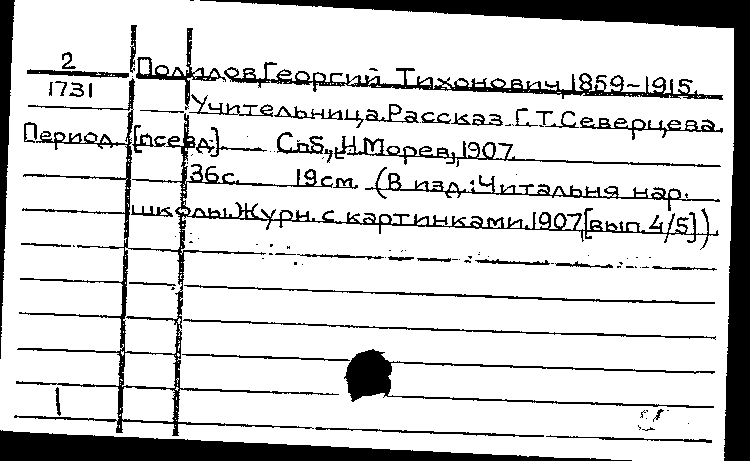 2 Полилов, Георгий Тихонович, 1859-1915.
1731 Учительница. Рассказ Г. Т. Северцева.
Период. [псевд.] Спб., Н. Морев, 1907.
36с. 19см. (В изд.: Читальня нар.
школы. Журн. с картинками. 1907[вып. 4/5]).
1